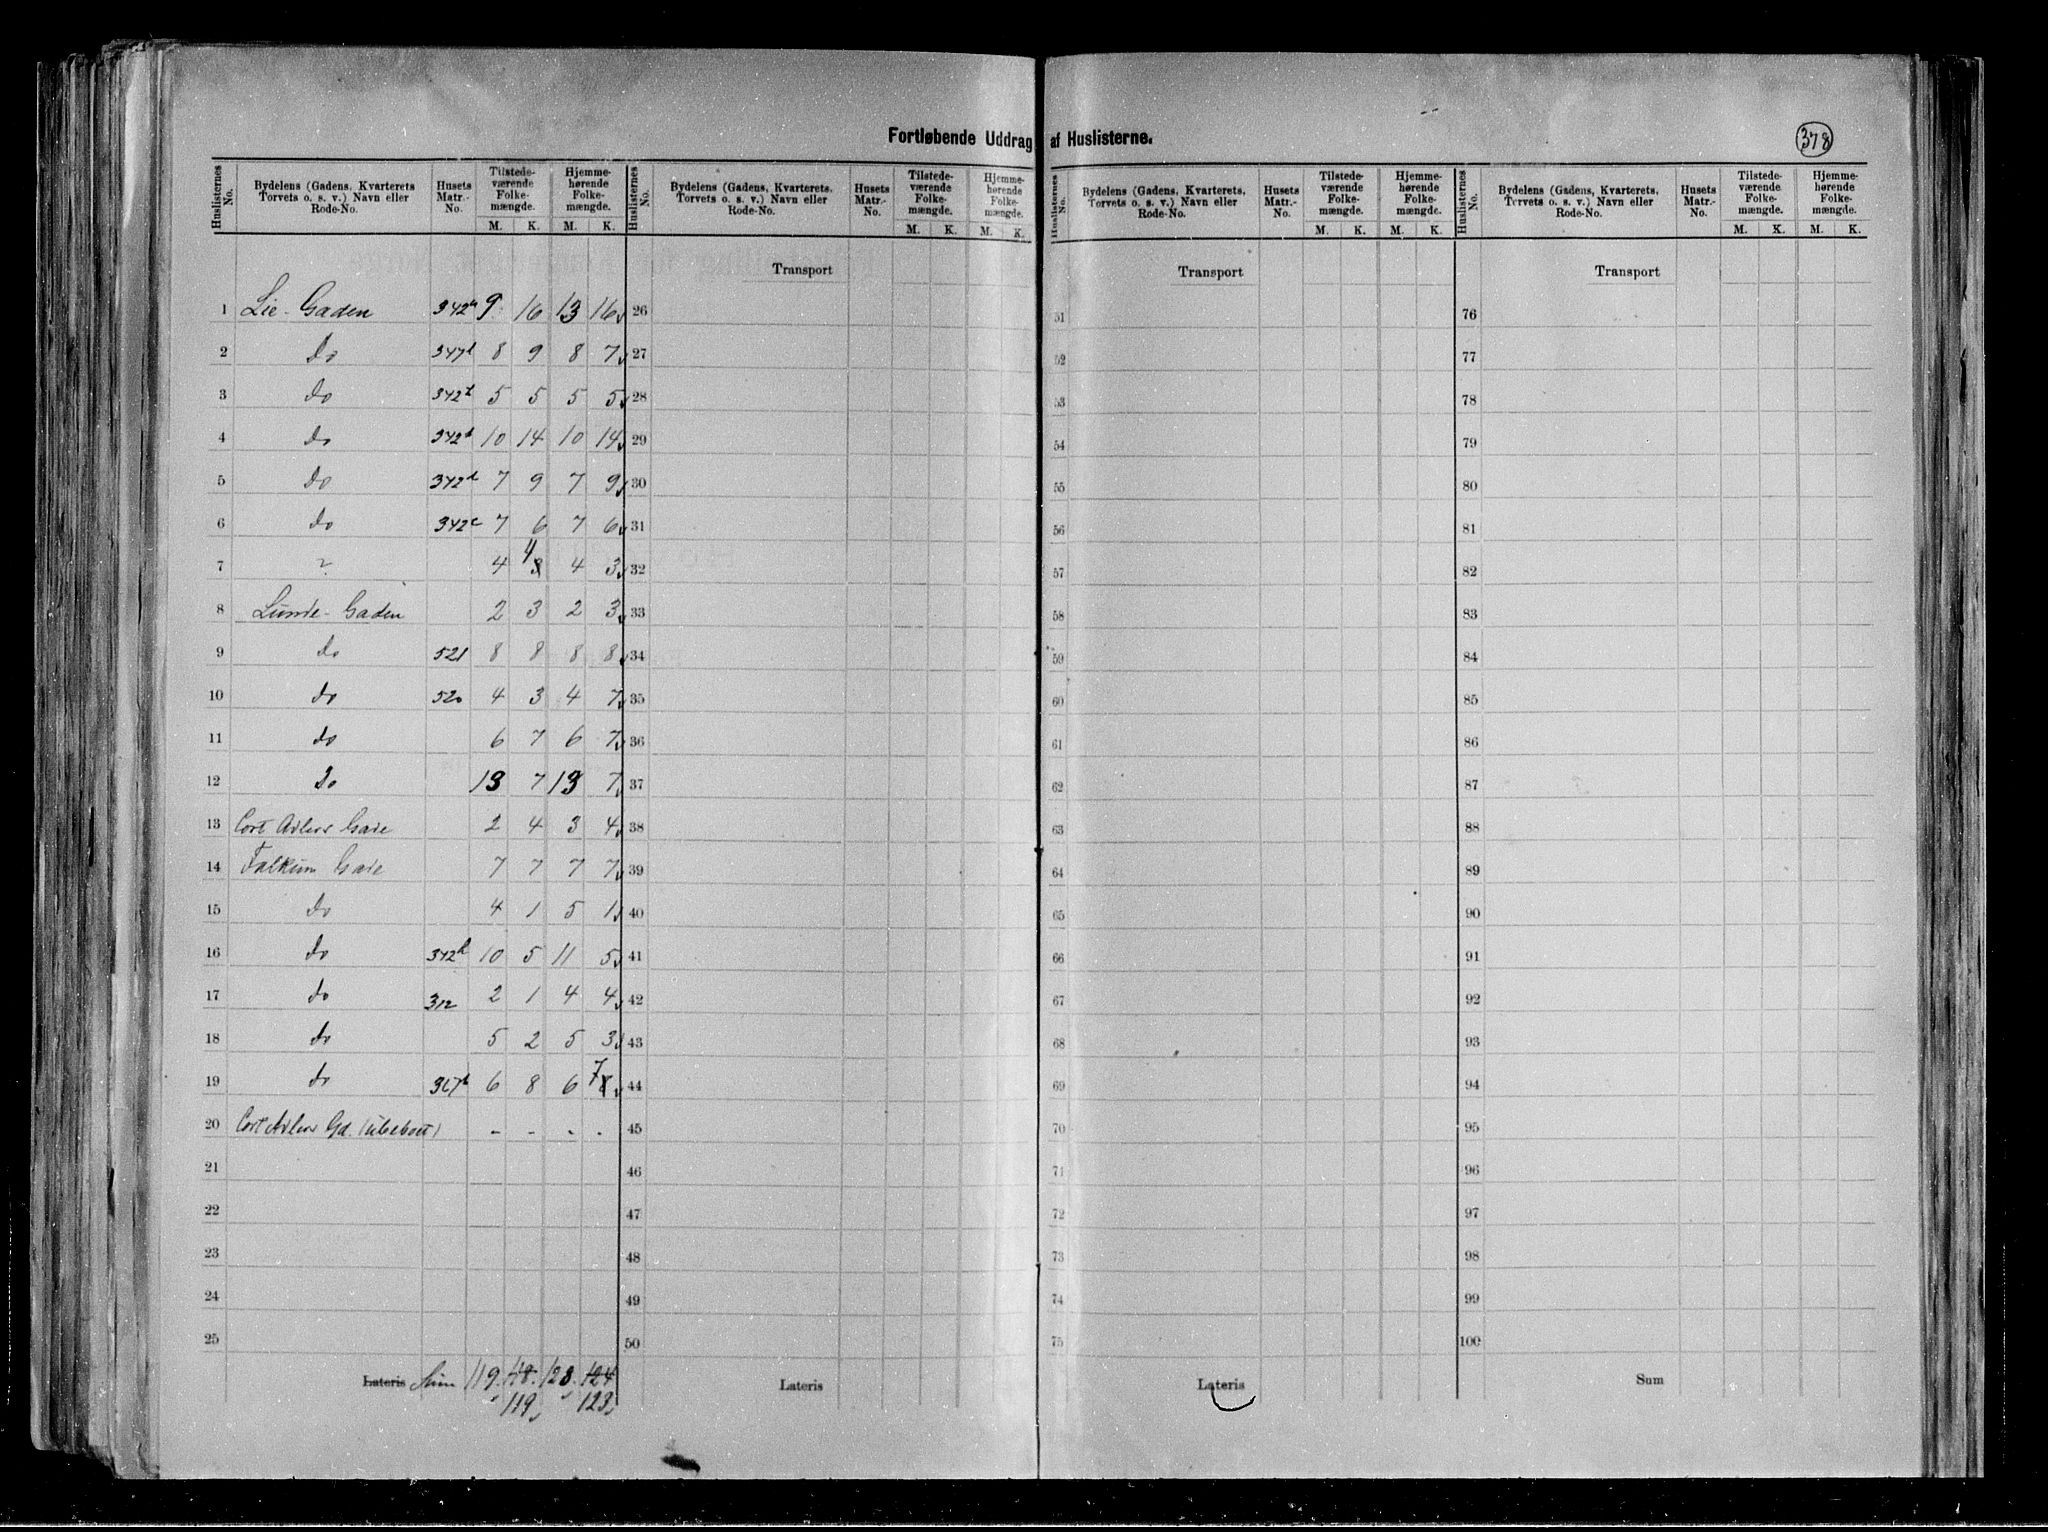 Fortløbende Uddrag af Huslisterne.
378
Huslisternes No. Bydelens (Gadens, Kvarterets Torvets o. s. v.) Navn eller Rode-No. Husets Matr.-No. Tilstede-værende Folke-mængde. M. K. Hjemme-hørende Folke-mængde. M. K.
Huslisternes No. Bydelens (Gadens, Kvarterets, Torvets o. s. v.) Navn eller Rode-No. Husets Matr.-No. Tilstede-værende Folke-mængde. M. K. Hjemme-hørende Folke-mængde. M. K.
Huslisternes No. Bydelens (Gadens, Kvarterets, Torvets o. s. v.) Navn eller Rode-No. Husets Matr.-No. Tilstede-værende Folke-mængde. M. K. Hjemme-hørende Folke-mængde. M. K.
Huslisternes No. Bydelens (Gadens, Kvarterets, Torvets o. s. v.) Navn eller Rode-No. Husets Matr.-No. Tilstede-værende Folke-mængde. M. K. Hjemme-hørende Folke-mængde. M. K.
Transport Transport Transport
1 Lie-Gaden 9 16 13 16 26 51 76
2 Do 8 9 8 7 27 52 77
3 do 5 5 5 5 28 53 78
4 do 10 14 10 14 29 54 79
5 Do 342d 7 9 7 9 30 55 80
6 do 342c 7 6 7 6 31 56 81
7 ? 4 4 3 4 3 32 57 82
8 Lunde-Gaden 2 3 2 3 33 58 83
9 do 521 8 8 8 8 34 59 84
10 do 520 4 3 4 7 35 60 85
11 do 6 7 6 7 36 61 86
12 Do 13 7 13 7 37 62 87
13 Cort Adlers Gade 2 4 3 4 38 63 88
14 Falkum Gade 7 7 7 7 39 64 89
15 do 4 1 5 1 40 65 90
16 do 342h 10 5 11 5 41 66 91
17 do 312 2 1 4 4 42 67 92
18 do 5 2 5 3 43 68 93
19 do 6 8 6 7 8 44 69 94
20 Cort Adlers Gd. (ubeboet) - - - - 45 70 95
21 46 71 96
22 47 72 97
23 48 73 98
24 49 74 99
25 50 75 100
Lateris Sum 119 118. 128. 124 Lateris Lateris Sum
119 123